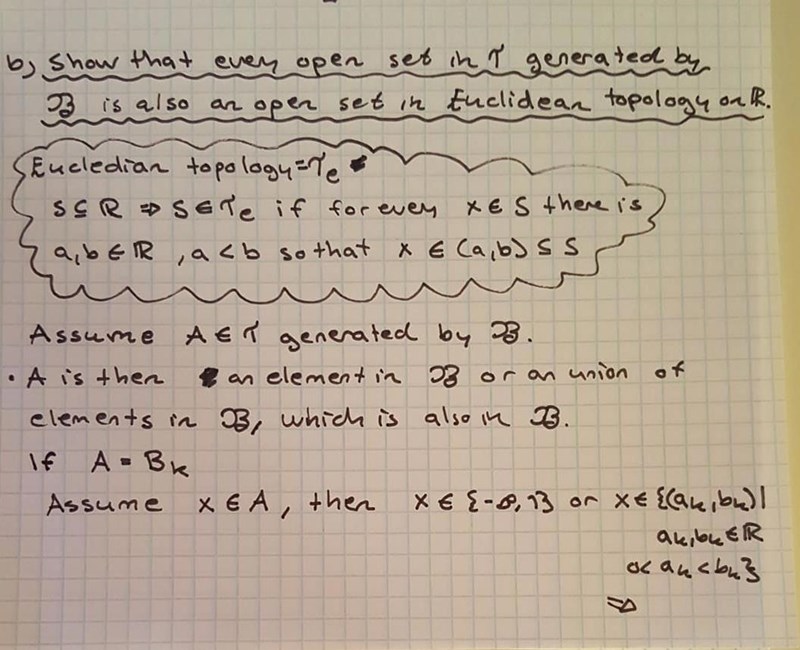 b) Show that every open set in τ generated by
ℬ is also an open set in Euclidean topology on ℝ.
Eucledian topology = τe
S ⊆ ℝ ⇒ S ∈ τe if for every x ∈ S there is
a,b ∈ ℝ, a < b so that x ∈ (a,b) ⊆ S
Assume A ∈ τ generated by ℬ.
• A is then an element in ℬ or an union of
elements in ℬ, which is also in ℬ.
If A = Bk
Assume x ∈ A, then x ∈ {-∞, 1} or x ∈ {(ak, bk) |
ak, bk ∈ ℝ
0 < ak < bk}
⇒